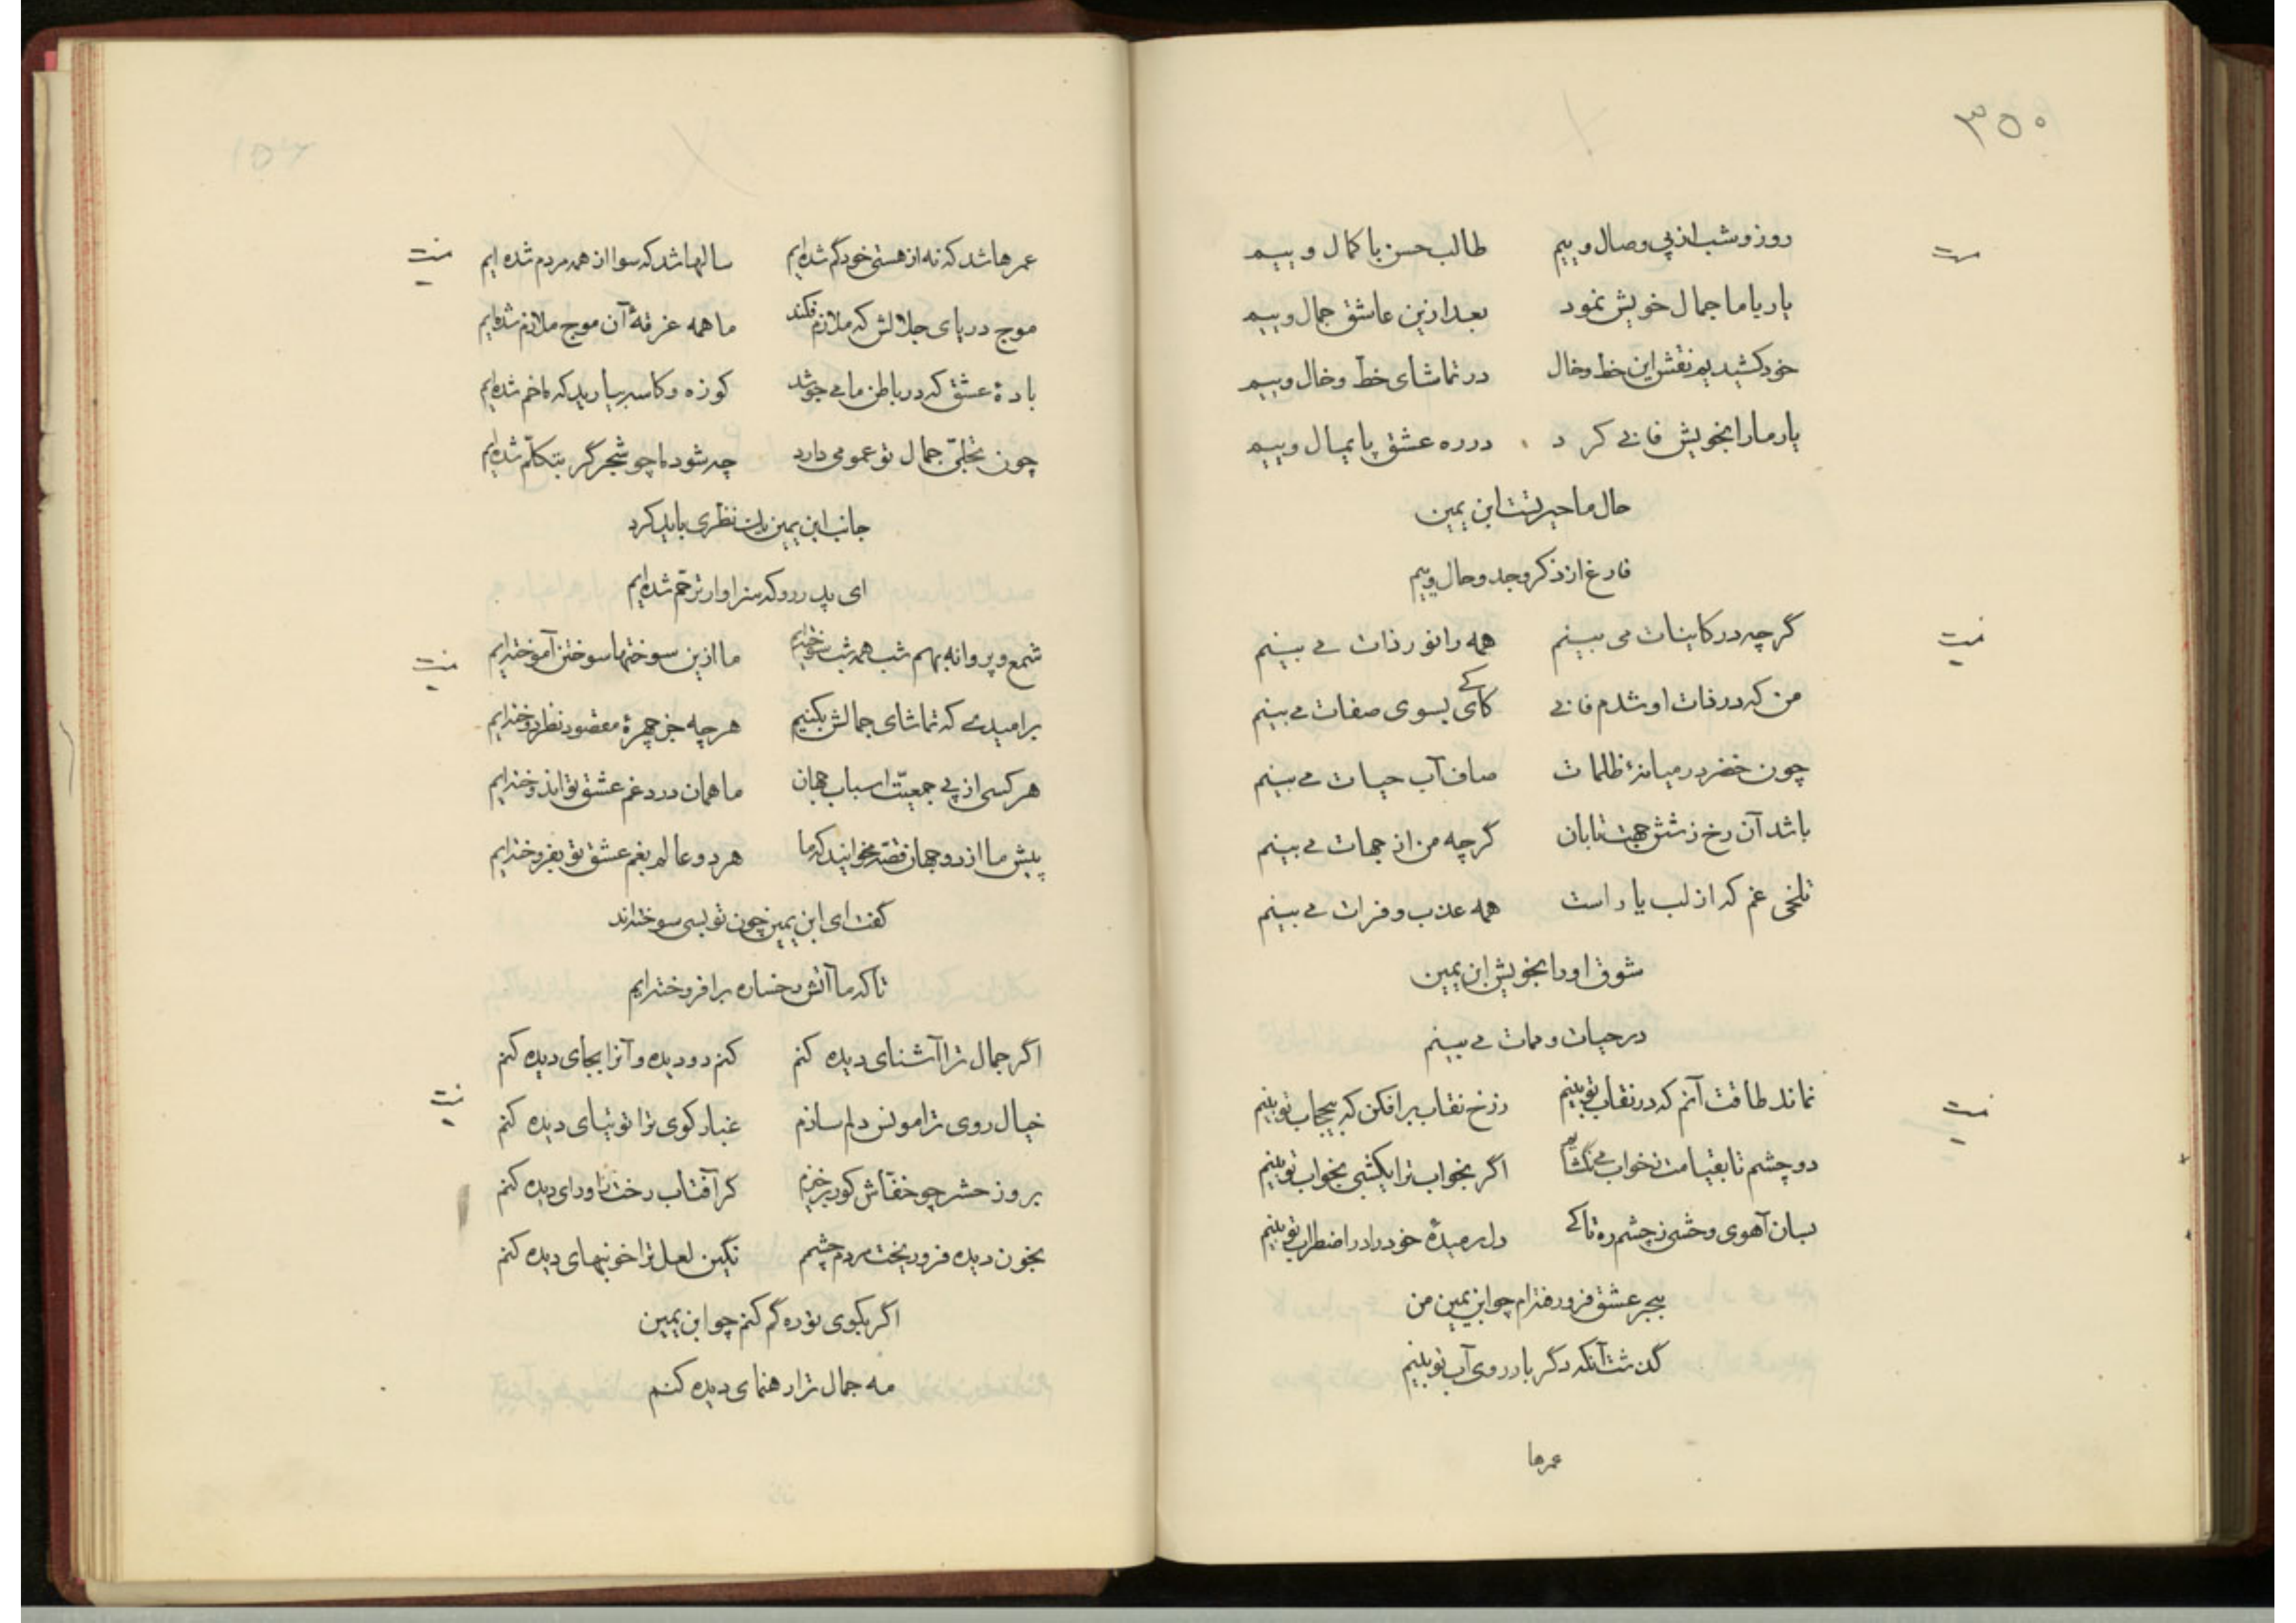 ۳۵۰
روز و شب از پی وصال وییم طالب حسن با کمال وییم
یار با ما جمال خویش نمود بعد ازین عاشق جمال وییم
خود کشیدیم نقش این خط و خال در تماشای خط و خال وییم
یار ما را بخویش فانی کرد در ره عشق پایمال وییم
حال ما حیرتست ابن یمین
فارغ از ذکر وجد و حال وییم
گرچه در کاینات می بینم همه را نور ذات می بینم
من که در ذات او شدم فانی کی بسوی صفات می بینم
چون خضر در میانهٔ ظلمات صاف آب حیات می بینم
باشد آن رخ ز شش جهت تابان گرچه من از جهات می بینم
تلخی غم که از لب یار است همه عذب و فرات می بینم
شوق او را بخویش ابن یمین
در حیات و ممات می بینم
نماند طاقت آنم که در نقاب تو بینم ز رخ نقاب برافکن که بیحجاب تو بینم
دو چشم تا بقیامت ز خواب می نگشایم اگر بخواب ترا یکشبی بخواب تو بینم
بسان آهوی وحشی ز چشم ره تا کی دل رمیدهٔ خود را در اضطراب تو بینم
ببحر عشق فرو رفته‌ام چو ابن یمین من
گذشت آنکه دگر بار روی آب تو بینم
عمرها
عمرها شد که نه از هستی خود گم شده‌ایم سالها شد که سوا از همه مردم شده‌ایم
موج دریای جلالش که ملازم فکند ما همه غرقهٔ آن موج ملازم شده‌ایم
بادهٔ عشق که در باطن ما می جوشد کوزه و کاسه بیارید که ما خم شده‌ایم
چون تجلّی جمال تو عمومی دارد چه شود ما چو شجر گر متکلّم شده‌ایم
جانب ابن یمین نظری باید کرد
ای پدر رو که سزاوار ترحّم شده‌ایم
شمع و پروانه بهم شب همه شب سوخته‌ایم ما ازین سوختها سوختن آموخته‌ایم
بر امیدی که تماشای جمالش بکنیم هرچه جز چهرهٔ مقصود نظر دوخته‌ایم
هر کسی از پی جمعیّت اسباب جهان ما همان درد غم عشق تو اندوخته‌ایم
پیش ما از دو جهان قصّه مخوانید که ما هر دو عالم بغم عشق تو بفروخته‌ایم
گفت ای ابن یمین چون تو بسی سوخته‌اند
تا که ما آتش رخساره برافروخته‌ایم
اگر جمال ترا آشنای دیده کنم کنم دو دیده و آنرا بجای دیده کنم
خیال روی ترا مونس دلم سازم غبار کوی ترا توتیای دیده کنم
بروز حشر چو خفّاش کور برخیزم گر آفتاب رخت را ورای دیده کنم
بخون دیده فرو ریخت مردم چشمم نگین لعل ترا خونبهای دیده کنم
اگر بکوی تو ره گم کنم چو ابن یمین
مه جمال ترا رهنمای دیده کنم